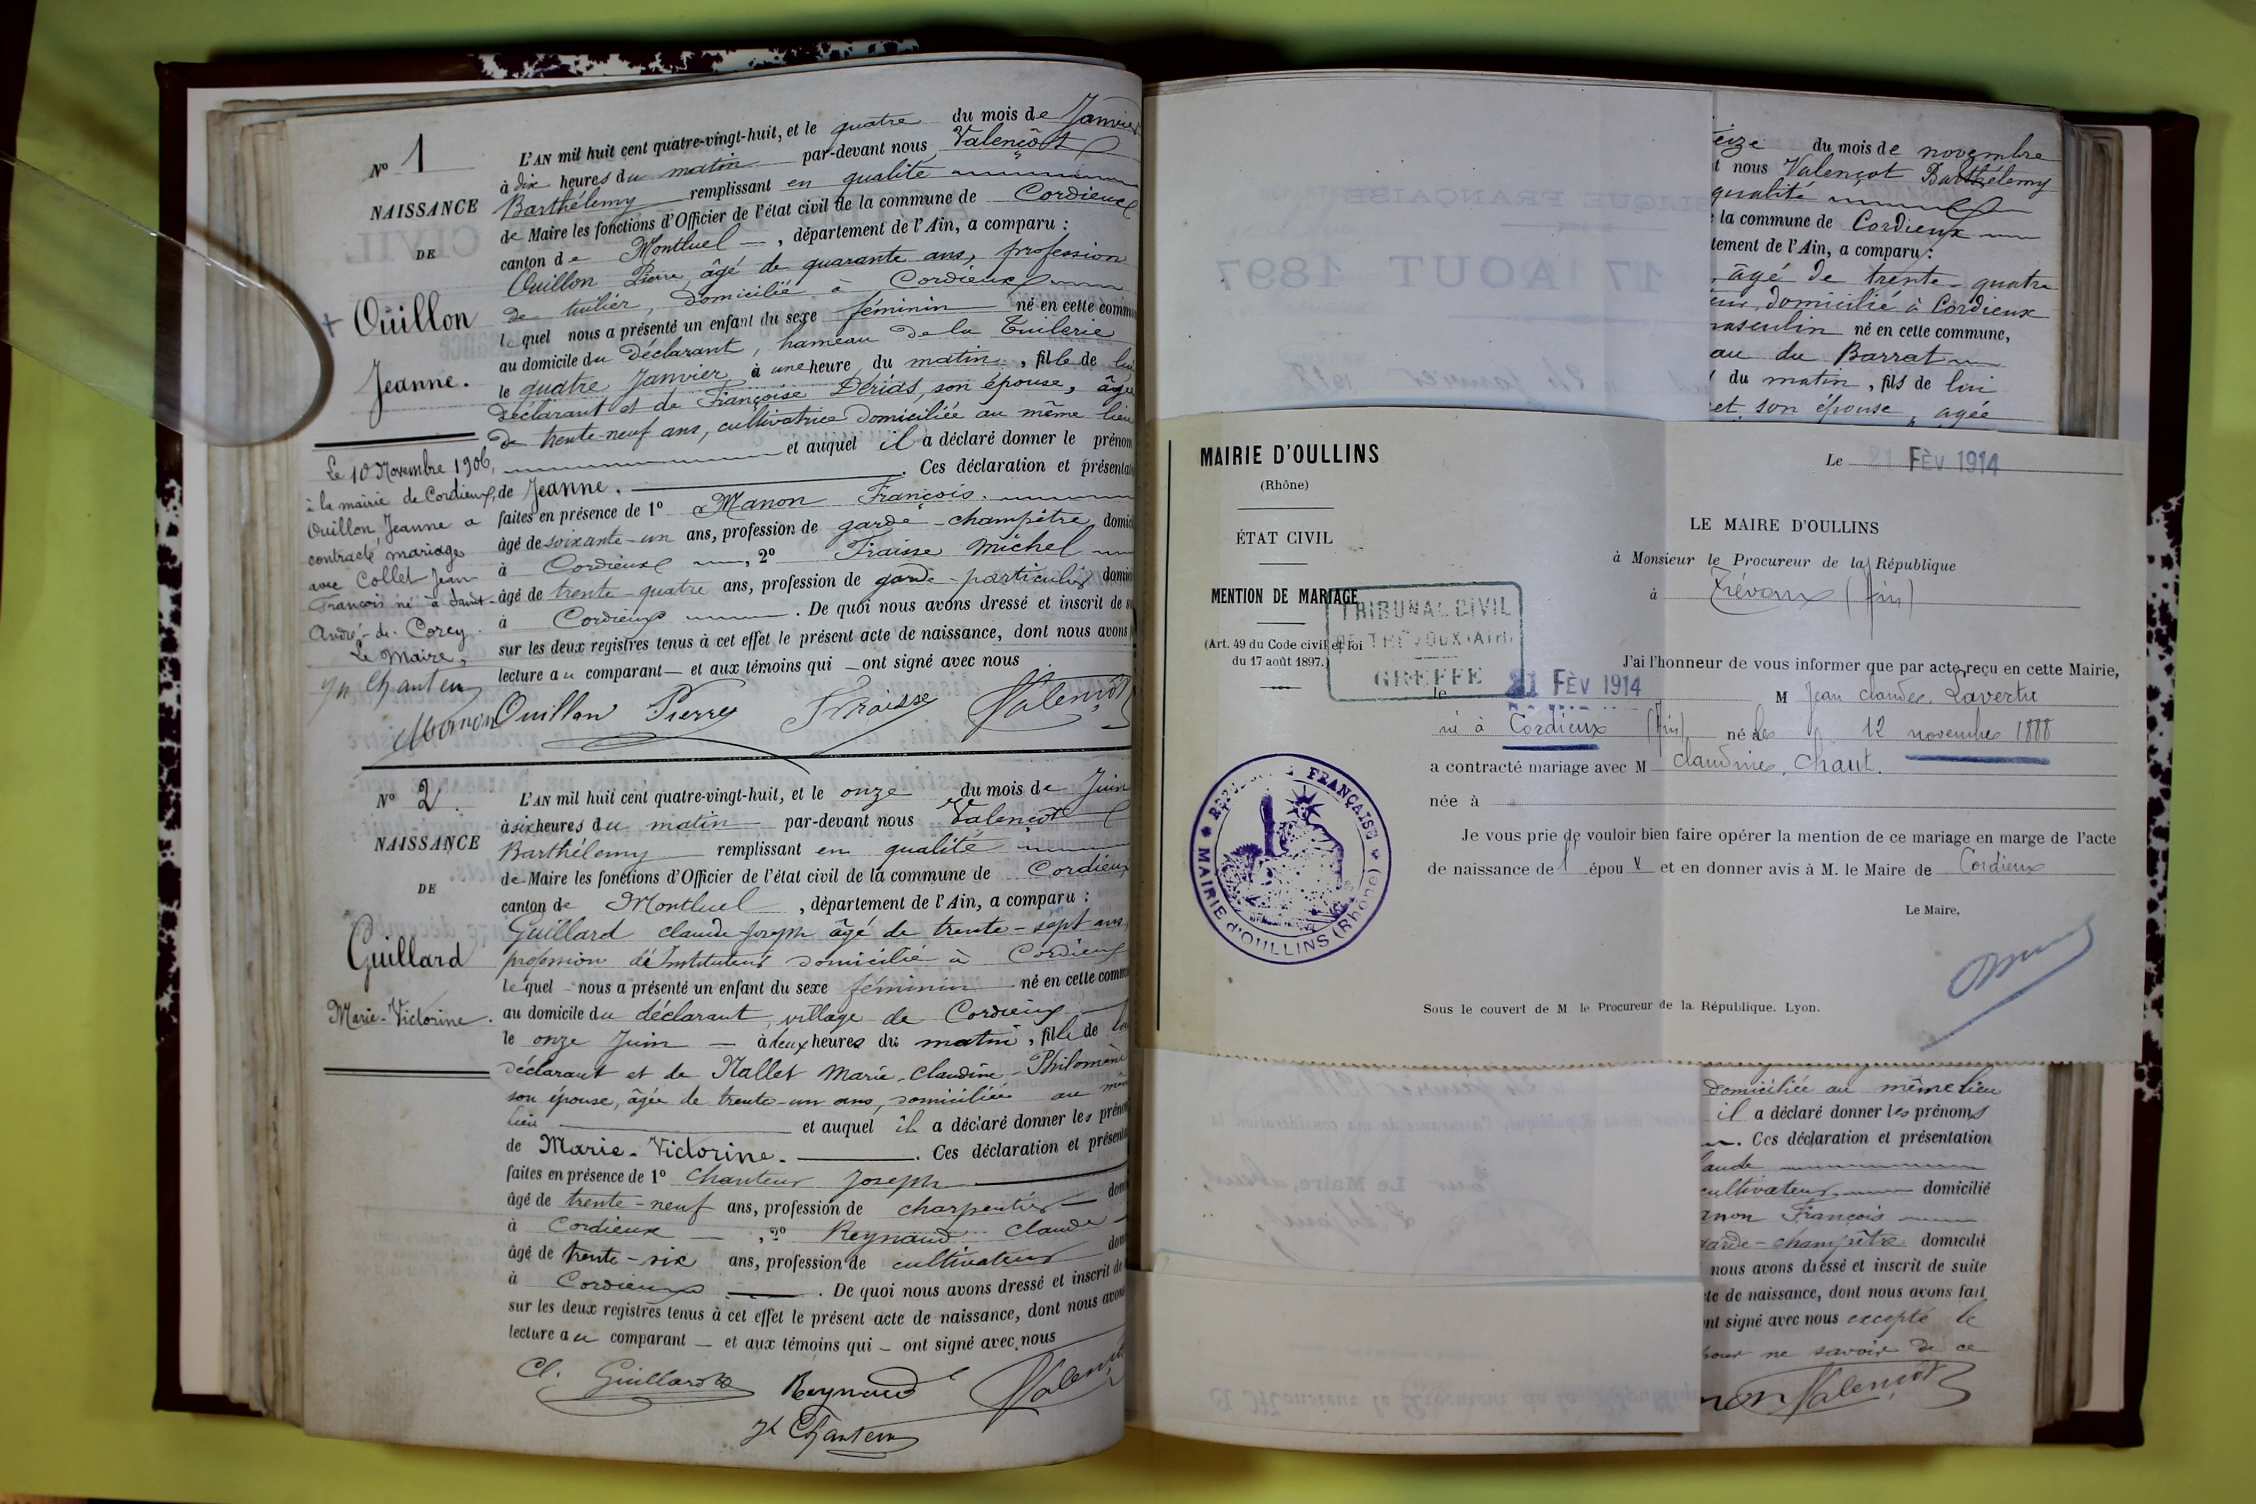 N° 1
NAISSANCE
DE
Ouillon
Jeanne.
L'AN mil huit cent quatre-vingt-huit, et le quatre du mois de Janvier
à dix heures du matin par-devant nous Valençot
Barthélemy remplissant en qualité
de Maire les fonctions d'Officier de l'état civil de la commune de Cordieux
canton de Montluel, département de l'Ain, a comparu :
Ouillon Pierre, âgé de quarante ans, profession
de tuilier, domicilié à Cordieux
lequel nous a présenté un enfant du sexe féminin né en cette comm
au domicile du Déclarant, hameau de la Tuilerie
le quatre Janvier à une heure du matin, fille de lui
Déclarant et de Françoise Dérias, son épouse, âgée
de trente-neuf ans, cultivatrice domiciliée au même lieu
et auquel il a déclaré donner le prénom
de Jeanne. Ces déclaration et présentat
faites en présence de 1° Manon François.
âgé de soixante-un ans, profession de garde-champêtre domici
à Cordieux, 2° Fraisse Michel
âgé de trente-quatre ans, profession de garde-particulier domici
à Cordieux. De quoi nous avons dressé et inscrit de s
sur les deux registres tenus à cet effet le présent acte de naissance, dont nous avons
lecture au comparant et aux témoins qui ont signé avec nous
Manon Ouillon Pierre Fraisse Valençot
Le 10 Novembre 1906,
à la mairie de Cordieux,
Ouillon Jeanne a
contracté mariage
avec Collet Jean
François né à Saint-
André-de-Corcy.
Le Maire,
Jh Chanteur
N° 2.
NAISSANCE
DE
Guillard
Marie-Victorine.
L'AN mil huit cent quatre-vingt-huit, et le onze du mois de Juin
à six heures du matin par-devant nous Valençot
Barthélemy remplissant en qualité
de Maire les fonctions d'Officier de l'état civil de la commune de Cordieux
canton de Montluel, département de l'Ain, a comparu :
Guillard Claude-Joseph âgé de trente-sept ans,
profession d'Instituteur domicilié à Cordieux
lequel nous a présenté un enfant du sexe féminin né en cette comm
au domicile du déclarant, village de Cordieux
le onze Juin à deux heures du matin, fille de lui
déclarant et de Nallet Marie-Claudine-Philomène
son épouse, âgée de trente-un ans, domiciliée au mêm
lieu et auquel il a déclaré donner les prénom
de Marie-Victorine. Ces déclaration et présenta
faites en présence de 1° Chanteur Joseph
âgé de trente-neuf ans, profession de charpentier dom
à Cordieux, 2° Reynaud Claude
âgé de trente-six ans, profession de cultivateur dom
à Cordieux. De quoi nous avons dressé et inscrit de
sur les deux registres tenus à cet effet le présent acte de naissance, dont nous avons
lecture au comparant et aux témoins qui ont signé avec nous
Cl. Guillard Reynaud Valençot
Jh Chanteur
eize du mois de novembre
t nous Valençot Barthélemy
qualité
e la commune de Cordieux
tement de l'Ain, a comparu :
, âgé de trente-quatre
eur, domicilié à Cordieux
masculin né en cette commune,
au du Barrat
du matin, fils de lui
et son épouse, agée
MAIRIE D'OULLINS
(Rhône)
ÉTAT CIVIL
MENTION DE MARIAGE
(Art. 49 du Code civil et loi
du 17 août 1897.)
TRIBUNAL CIVIL
DE TRÉVOUX (AIN)
GREFFE
RÉPUBLIQUE FRANÇAISE
MAIRIE d'OULLINS (Rhône)
Le 21 FÉV 1914
LE MAIRE D'OULLINS
à Monsieur le Procureur de la République
à Trévoux (Ain)
J'ai l'honneur de vous informer que par acte reçu en cette Mairie,
le 21 FÉV 1914 M Jean Claude Lavertu
né à Cordieux (Ain) né le 12 novembre 1888
a contracté mariage avec M Claudine Chaut.
née à
Je vous prie de vouloir bien faire opérer la mention de ce mariage en marge de l'acte
de naissance de l'épou x et en donner avis à M. le Maire de Cordieux
Le Maire,
Sous le couvert de M. le Procureur de la République. Lyon.
domiciliée au même lieu
il a déclaré donner les prénoms
. Ces déclaration et présentation
laude
cultivateur domicilié
anon François
garde-champêtre domicilié
nous avons dressé et inscrit de suite
te de naissance, dont nous avons fait
nt signé avec nous excepté le
pour ne savoir de ce
non Valençot